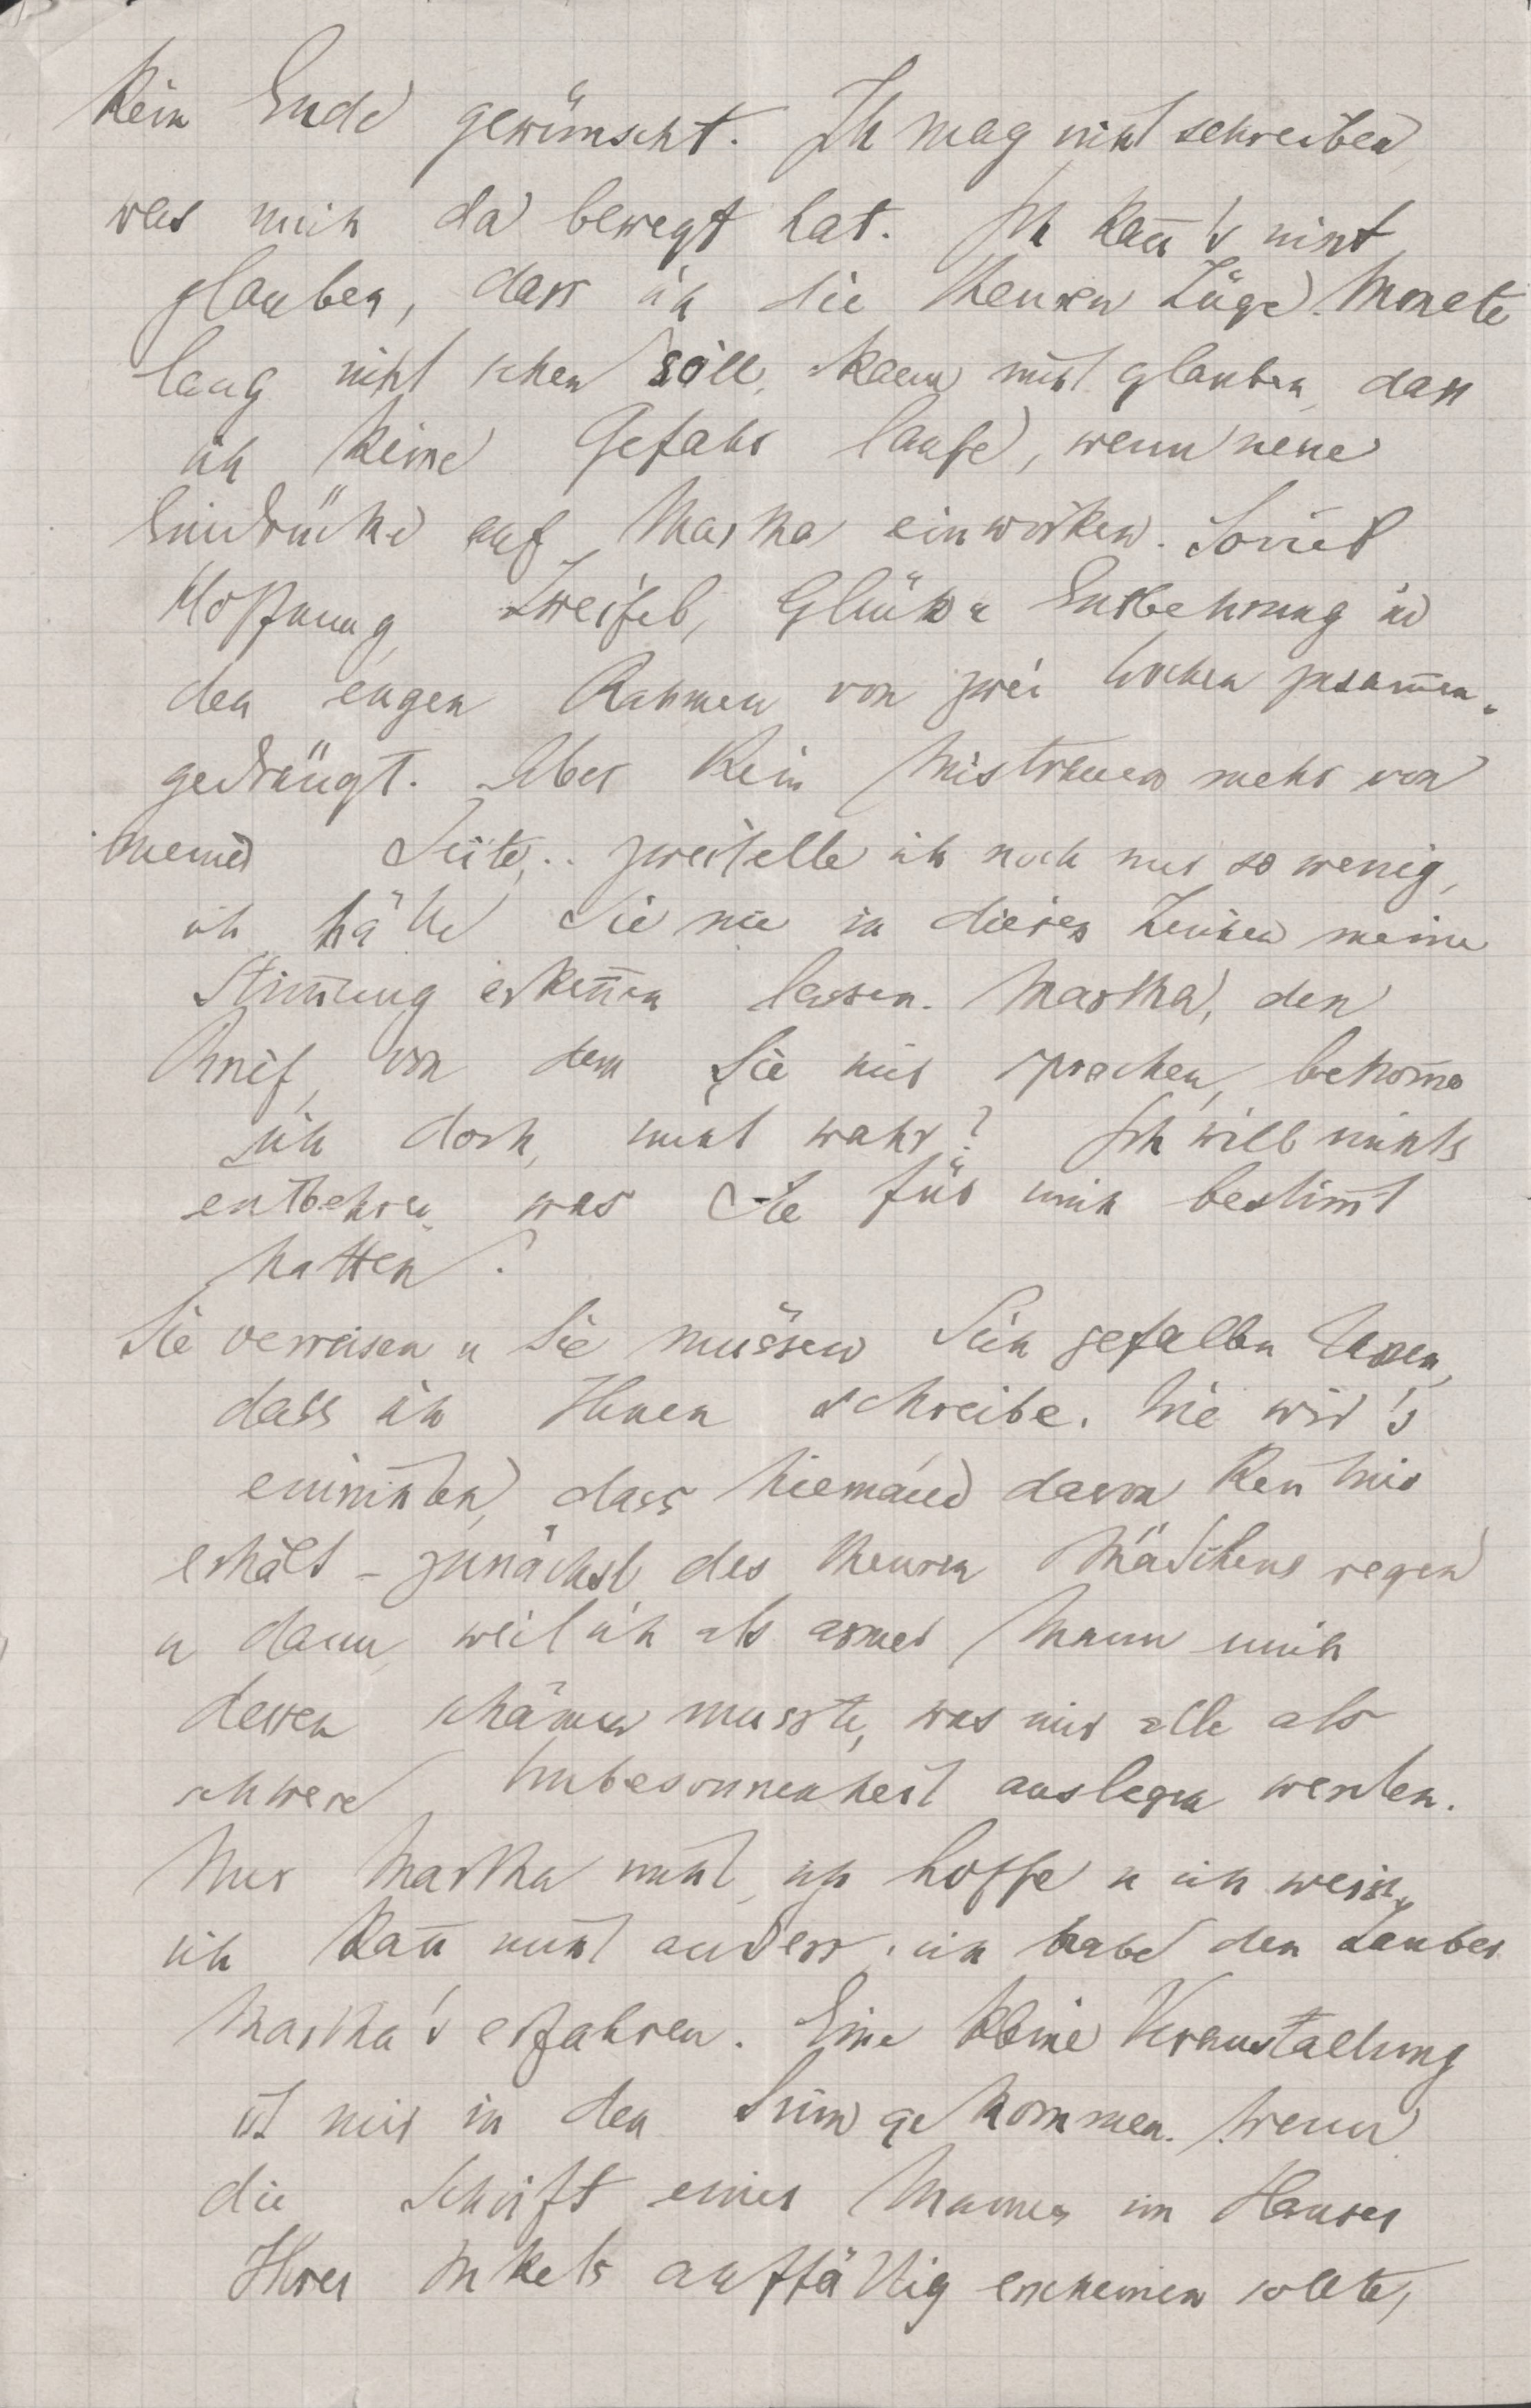 kein Ende gewünscht. Ich mag nicht schreiben,
was mich da bewegt hat. Ich kan̄'s nicht
glauben, dass ich die theuren Züge Monate
lang nicht sehen soll, kaum nicht glauben, dass
ich keine Gefahr laufe, wenn neue
Eindrücke auf Martha einwirken. Soviel
Hoffnung, Zweifel, Glück u Entbehrung in
den engen Rahmen von zwei Wochen zusam̄en-
gedrängt. Aber kein Mistrauen mehr von
meiner Seite.. zweifelte ich noch nur so wenig,
ich hätte Sie nie in diesen Zeichen meine
Stim̄ung erken̄en lassen. Martha, den
Brief, von dem Sie mir sprachen, bekom̄e
ich doch, nicht wahr? Ich will nichts
entbehren, was Sie für mich bestim̄t
hatten.
Sie verreisen u Sie müssen Sich gefallen lassen,
dass ich Ihnen schreibe. Wie wir's
einrichten, dass Niemand davon Ken̄tnis
erhält – zunächst des theuren Mädchens wegen
u dann, weil ich als armer Mann mich
dessen schämen musste, was mir alle als
schwere Unbesonnenheit auslegen werden.
Nur Martha nicht, ich hoffe u ich weiss,
ich kan̄ nicht anders, ich habe den Zauber
Martha's erfahren. Eine kleine Veranstaltung
ist mir in den Sinn gekommen. Wenn
die Schrift eines Mannes im Hause
Ihres Onkels auffällig erscheinen sollte,